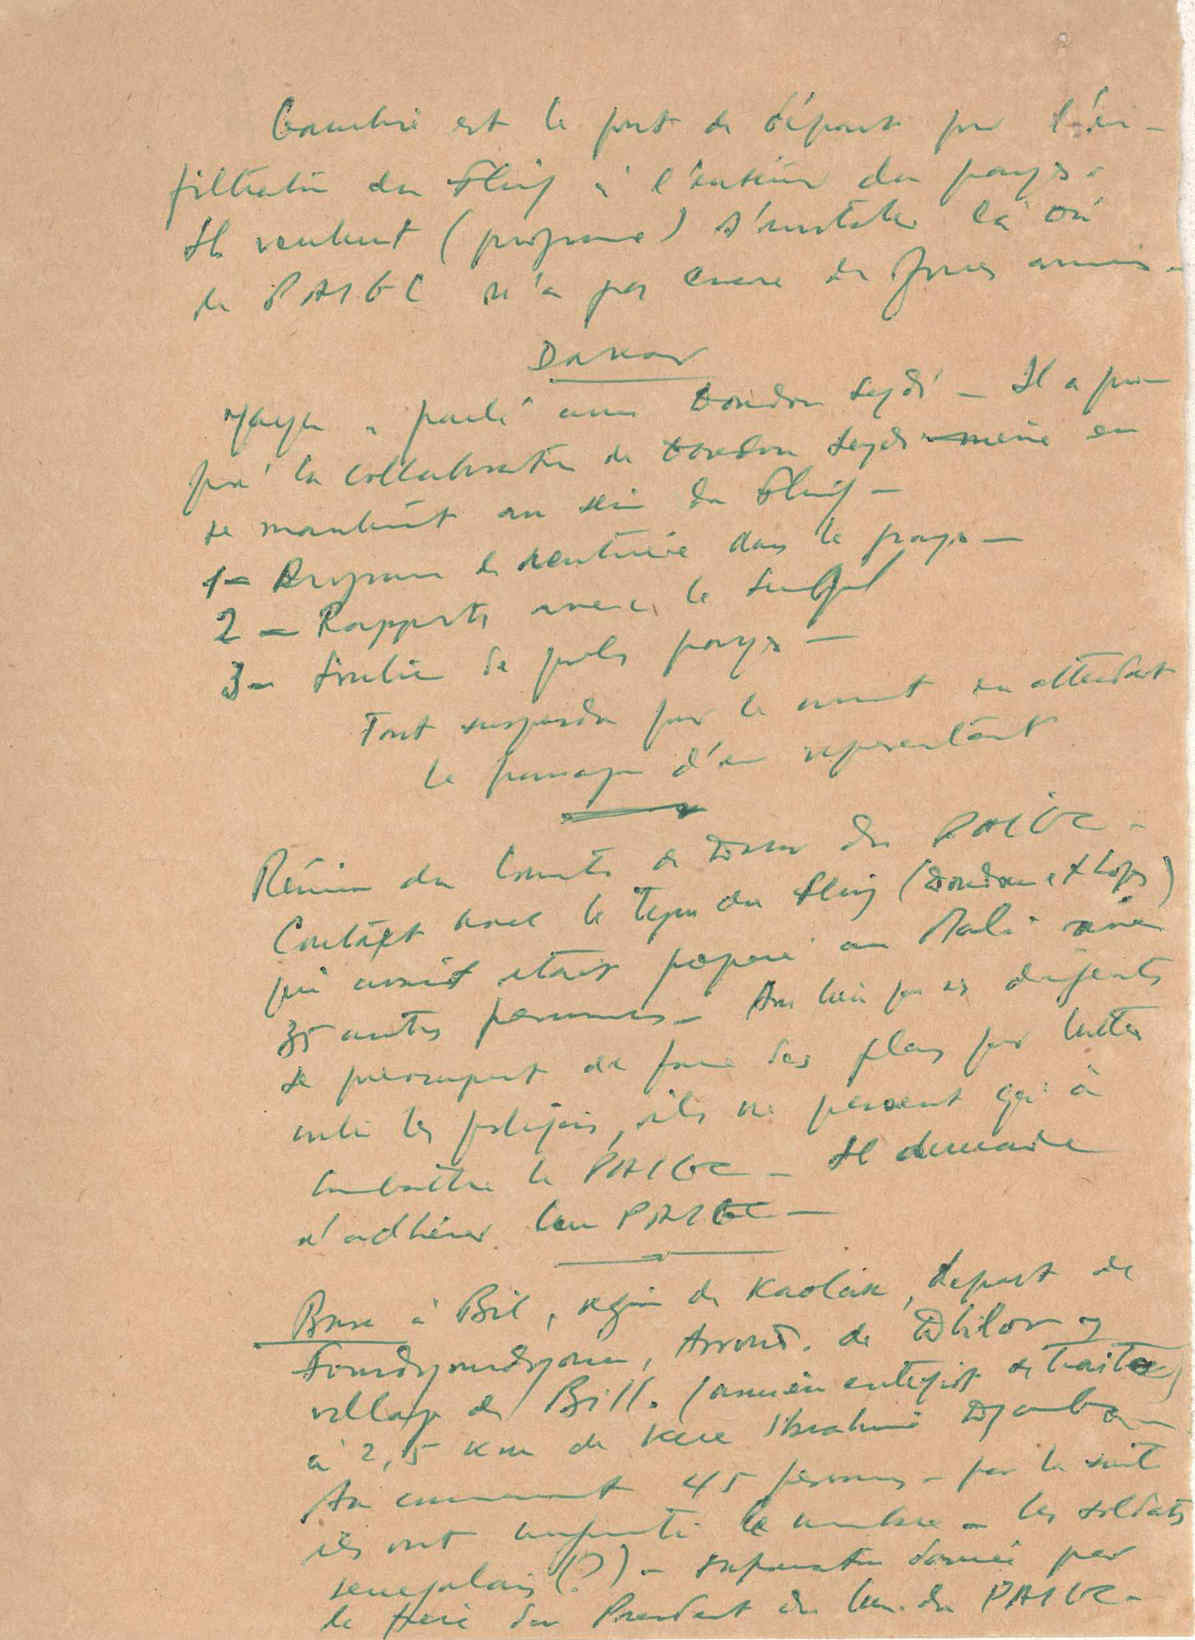 Gambie est le pont de départ pour l'in-
filtration du Fling à l'intérieur du pays.
Ils veulent (programme) s'installer là où
le PAIGC n'a pas encore de forces armées -
Dakar
Yaya a parlé avec Doudou Seydi - Il a pro-
posé la collaboration de Doudou Seydi même en
se maintenant au sein du Fling -
1 - Programme de rentrée dans le pays -
2 - Rapports avec le Sénégal
3 - Soutien de quels pays -
Tout suspendu pour le moment en attendant
le passage d'un représentant
Réunion du Comité de Dakar du PAIGC -
Contact avec le type du Fling (Doudou
qui avait était préparé au Mali avec
35 autres personnes - Au lieu que les dirigeants
se préoccupent de faire des plans pour lutter
contre les portugais, ils ne pensent qu'à
combattre le PAIGC - Il demande
d'adhérer au PAIGC -
Base à Bil, région de Kaolak, depart de
Foundyoundyoun, Arront. de
village de Bill. (ancien entrepôt de traite)
à 2,5 km de Keur Ibrahima
Au commencement 45 personnes - par la suite
ils ont augmenté le nombre - les soldats
senegalais (?) - information donnée par
le frère du President du Com. du PAIGC -